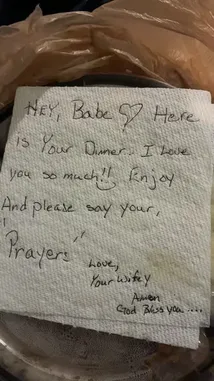 HEY, Babe ♡ Here
is Your Dinner. I Love
you so much!! Enjoy
And please say your,
"Prayers"
Love,
Your Wifey
Amen
God Bless you....